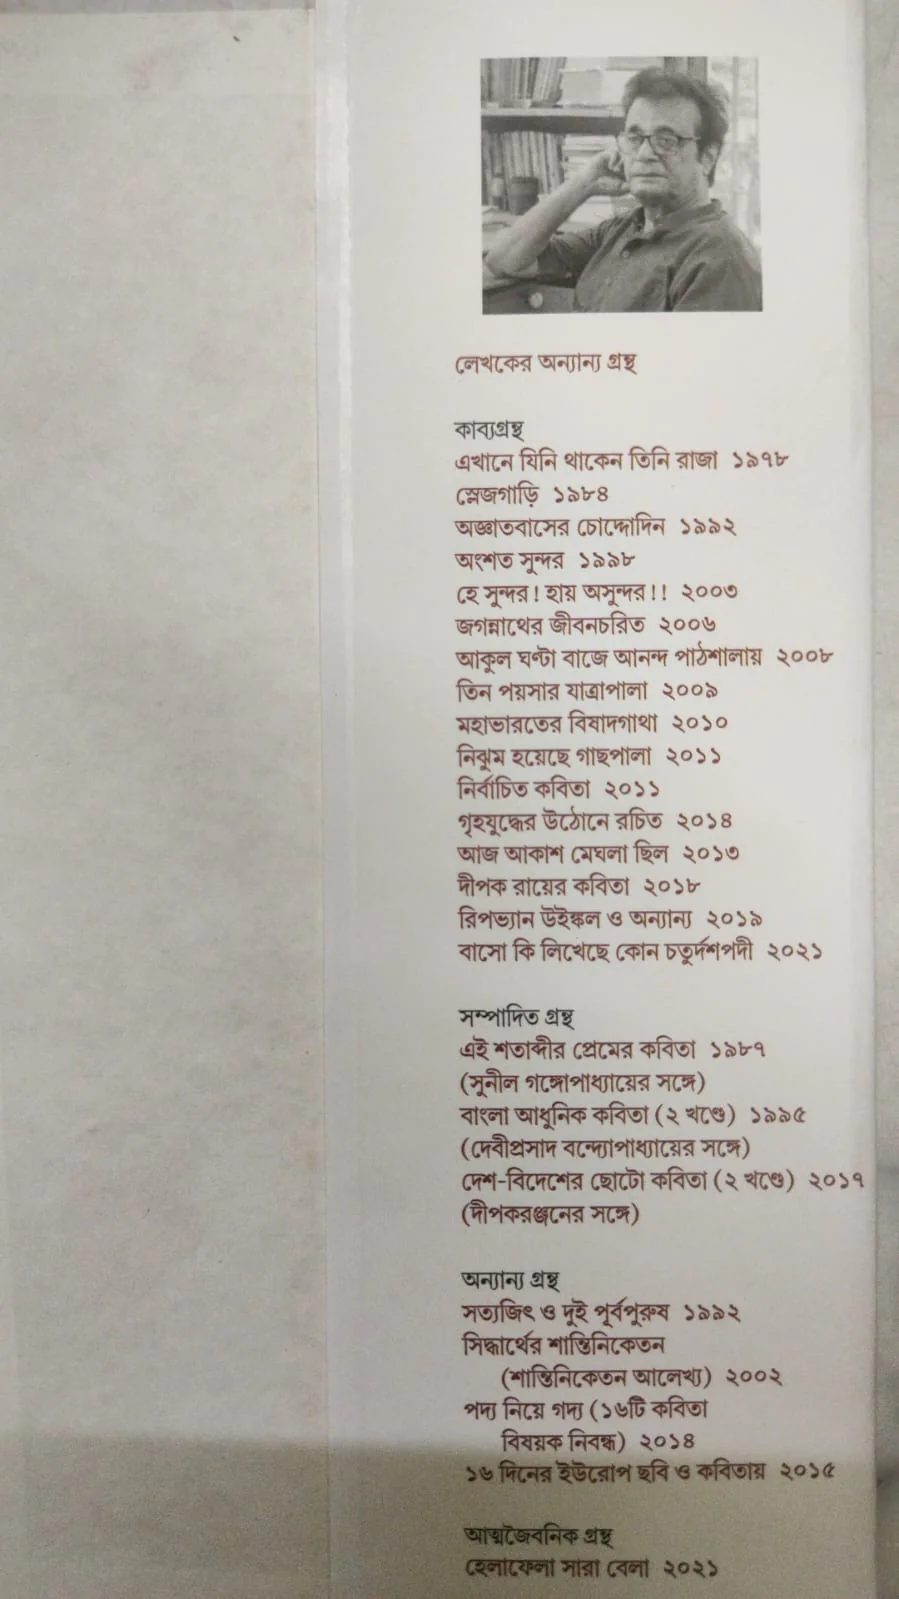 লেখকের অন্যান্য গ্রন্থ
কাব্যগ্রন্থ
এখানে যিনি থাকেন তিনি রাজা ১৯৭৮
স্লেজগাড়ি ১৯৮৪
অজ্ঞাতবাসের চোদ্দোদিন ১৯৯২
অংশত সুন্দর ১৯৯৮
হে সুন্দর! হায় অসুন্দর!! ২০০৩
জগন্নাথের জীবনচরিত ২০০৬
আকুল ঘণ্টা বাজে আনন্দ পাঠশালায় ২০০৮
তিন পয়সার যাত্রাপালা ২০০৯
মহাভারতের বিষাদগাথা ২০১০
নিঝুম হয়েছে গাছপালা ২০১১
নির্বাচিত কবিতা ২০১১
গৃহযুদ্ধের উঠোনে রচিত ২০১৪
আজ আকাশ মেঘলা ছিল ২০১৩
দীপক রায়ের কবিতা ২০১৮
রিপভ্যান উইঙ্কল ও অন্যান্য ২০১৯
বাসো কি লিখেছে কোন চতুর্দশপদী ২০২১
সম্পাদিত গ্রন্থ
এই শতাব্দীর প্রেমের কবিতা ১৯৮৭
(সুনীল গঙ্গোপাধ্যায়ের সঙ্গে)
বাংলা আধুনিক কবিতা (২ খণ্ডে) ১৯৯৫
(দেবীপ্রসাদ বন্দ্যোপাধ্যায়ের সঙ্গে)
দেশ-বিদেশের ছোটো কবিতা (২ খণ্ডে) ২০১৭
(দীপকরঞ্জনের সঙ্গে)
অন্যান্য গ্রন্থ
সত্যজিৎ ও দুই পূর্বপুরুষ ১৯৯২
সিদ্ধার্থের শান্তিনিকেতন
(শান্তিনিকেতন আলেখ্য) ২০০২
পদ্য নিয়ে গদ্য (১৬টি কবিতা
বিষয়ক নিবন্ধ) ২০১৪
১৬ দিনের ইউরোপ ছবি ও কবিতায় ২০১৫
আত্মজৈবনিক গ্রন্থ
হেলাফেলা সারা বেলা ২০২১